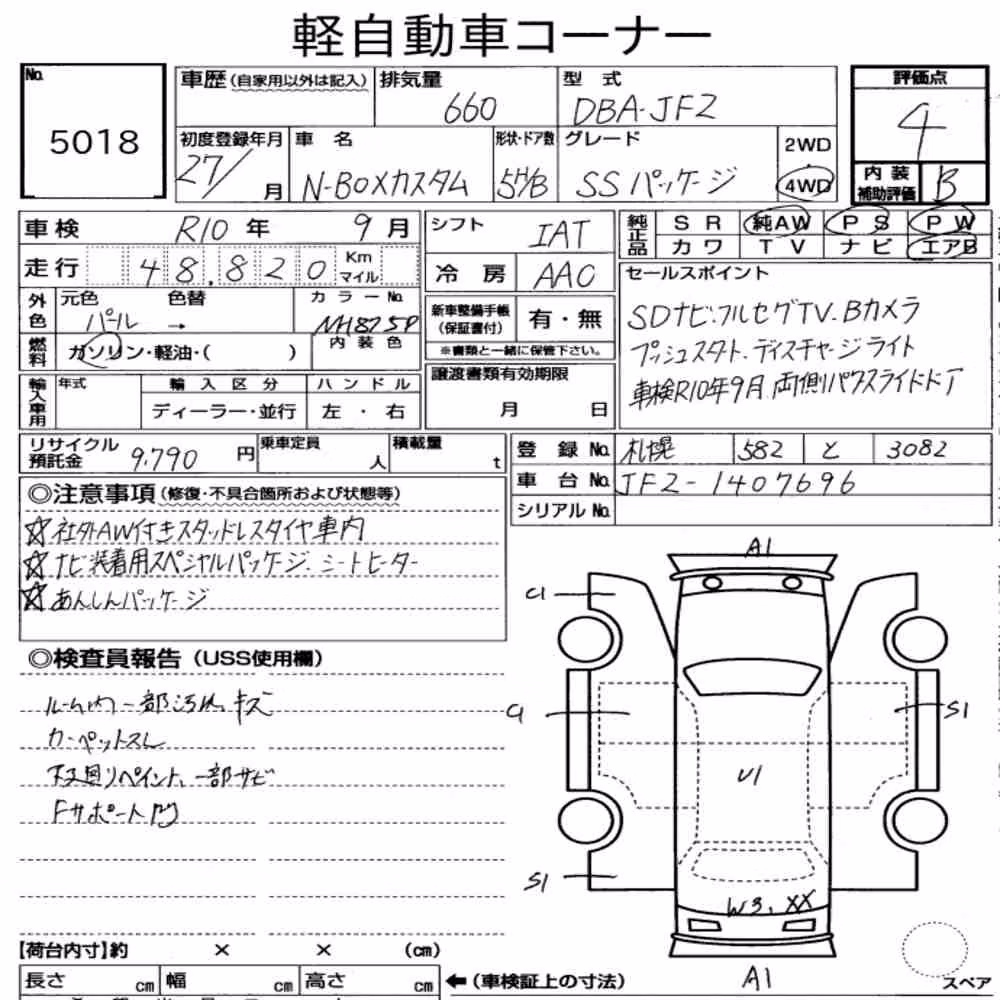 軽自動車コーナー
No. 5018
車歴(自家用以外は記入) 排気量 660 型式 DBA-JF2
評価点 4
初度登録年月 27/ 月 車名 N-BOXカスタム 形状・ドア数 5H/B グレード SSパッケージ 2WD 4WD
内装補助評価 B
車検 R10年 9月 シフト IAT
純正品 SR 純AW PS PW カワ TV ナビ エアB
走行 48,820 Km マイル 冷房 AAC
外色 元色 パール → 色替 カラーNo. NH875P
新車整備手帳(保証書付) 有・無
※書類と一緒に保管下さい。
燃料 ガソリン・軽油・( ) 内装色
セールスポイント
SDナビ.フルセグTV.Bカメラ
プッシュスタート.ディスチャージライト
車検R10年9月.両側パワスライドドア
輸入車用 年式 輸入区分 ハンドル
ディーラー・並行 左・右
譲渡書類有効期限
月 日
リサイクル預託金 9,790円 乗車定員 人 積載量 t
登録No. 札幌 582 と 3082
車台No. JF2-1407696
シリアルNo.
◎注意事項(修復・不具合箇所および状態等)
☆社外AW付きスタッドレスタイヤ車内
☆ナビ装着用スペシャルパッケージ.シートヒーター
☆あんしんパッケージ
◎検査員報告(USS使用欄)
ルーム内一部汚れ、キズ
カーペットスレ
下廻りペイント、一部サビ
Fサポート凹
A1
C1
C1
S1
U1
S1
W3,XX
A1
【荷台内寸】約 × × (cm)
長さ cm 幅 cm 高さ cm ←(車検証上の寸法)
スペア